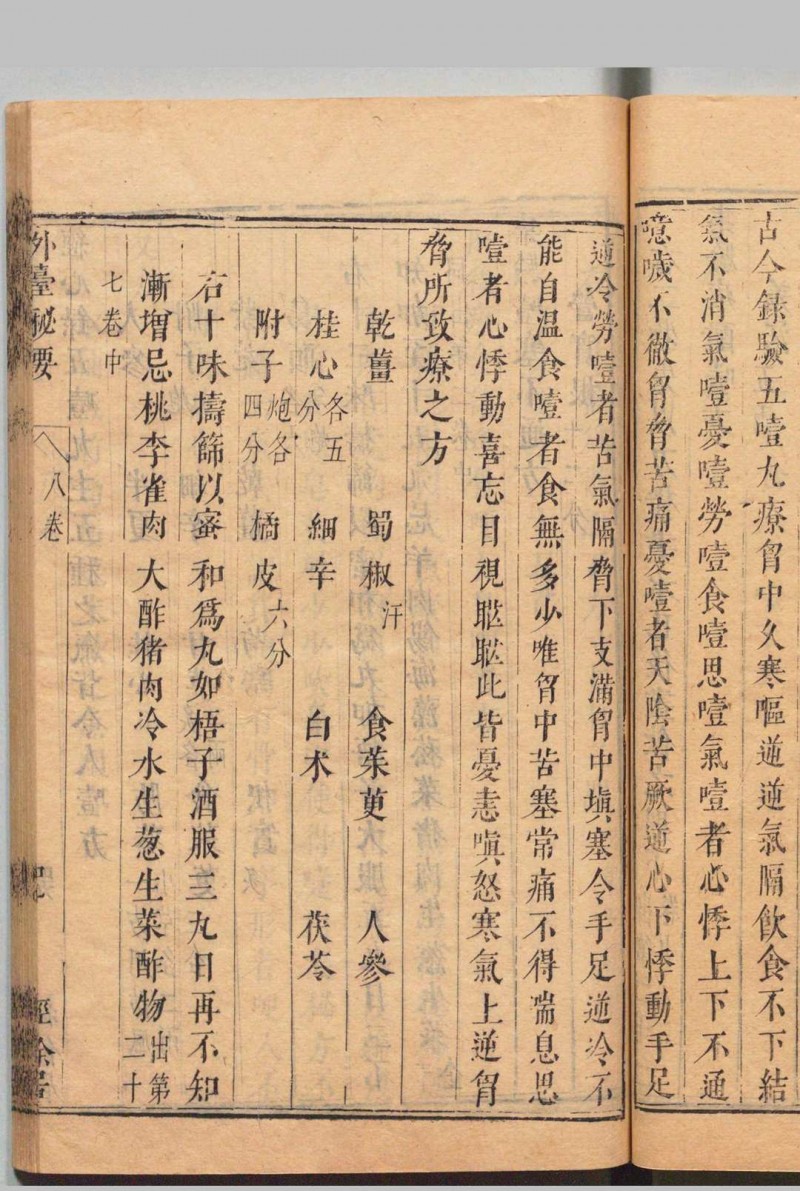 古今錄驗五噎丸療胷中久寒嘔逆逆氣隔飲食不下結
氣不消氣噎憂噎勞噎食噎思噎氣噎者心悸上下不通
噫噦不徹胷脅苦痛憂噎者天陰苦厥逆心下悸動手足
逆冷勞噎者苦氣隔脅下支滿胷中塡塞令手足逆冷不
能自温食噎者食無多少唯胷中苦塞常痛不得喘息思
噎者心悸動喜忘目視䀮䀮此皆憂恚嗔怒寒氣上逆胷
脅所致療之方
乾薑 蜀椒汗 食茱萸 人參
桂心各五分 細辛 白术 茯苓
附子炮各四分 橘皮六分
右十味擣篩以蜜和爲丸如梧子酒服三丸日再不知
漸增忌桃李雀肉大酢猪肉冷水生葱生菜酢物出第二十
七卷中
外臺秘要 八卷 經餘居